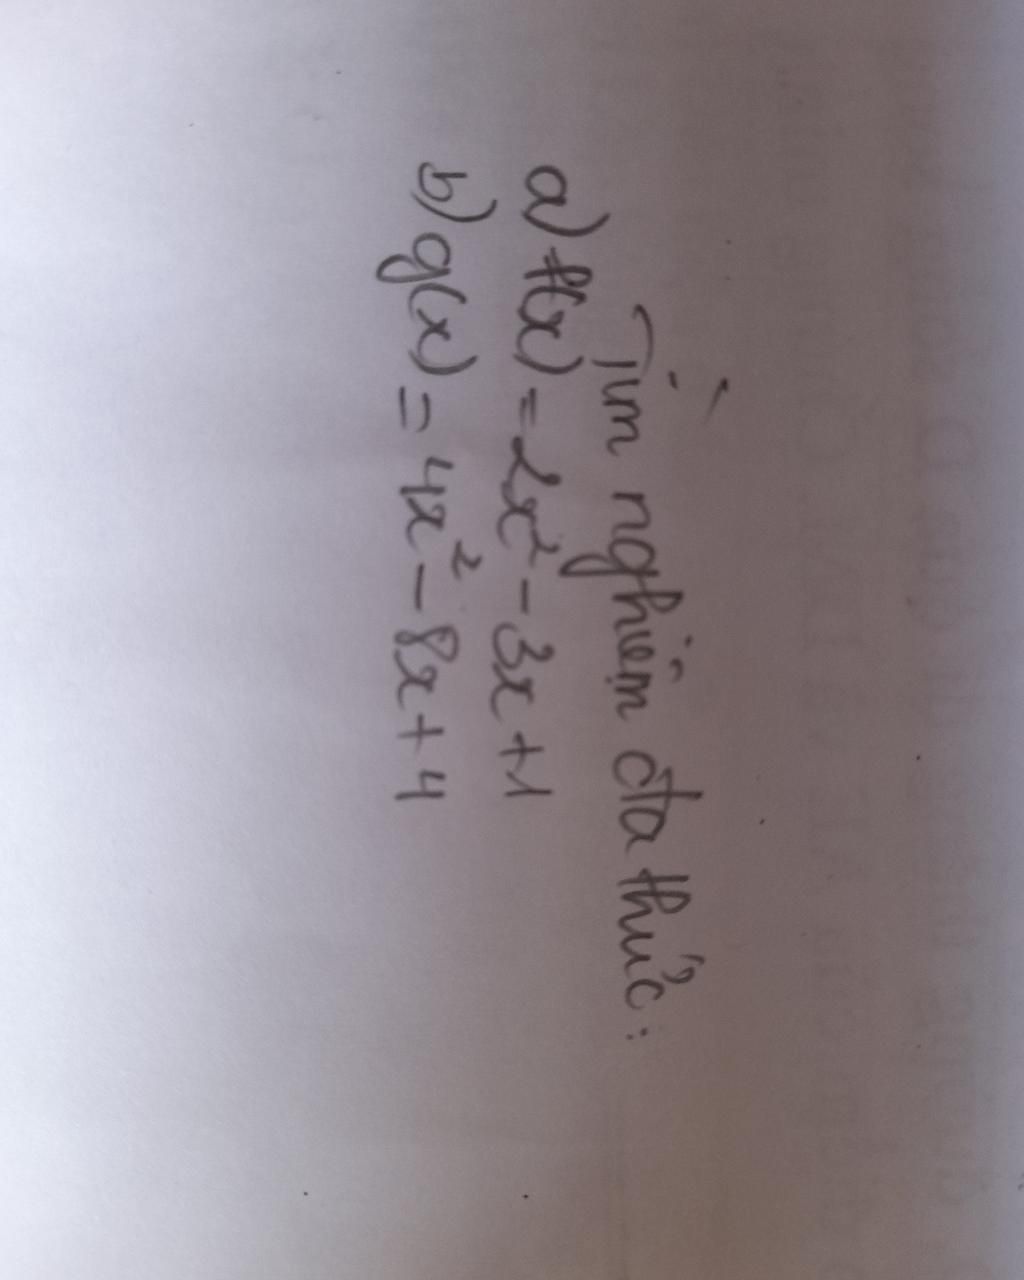 Tìm nghiệm đa thức:
a) f(x) = 2x² - 3x + 1
b) g(x) = 4x² - 8x + 4